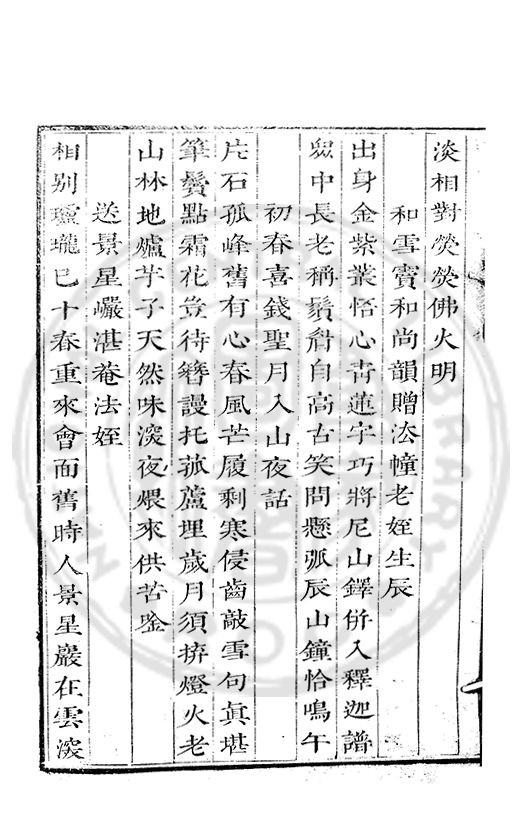 淡相對熒熒佛火明
和雪竇和尚韻贈法幢老姪生辰
出身金紫叢悟心青蓮字巧將尼山鐸併入釋迦譜
眾中長老稱鬚眉自高古笑問懸弧辰山鐘恰鳴午
初春喜錢聖月入山夜話
片石孤峰舊有心春風芒屨剩寒侵齒敲雪句真堪
筆鬢點霜花豈待簪謾托菰蘆埋歲月須拚燈火老
山林地爐芋子天然味深夜煨來供苦唫
送景星巖湛菴法姪
相別瓊瓏已十春重來會面舊時人景星巖在雲深